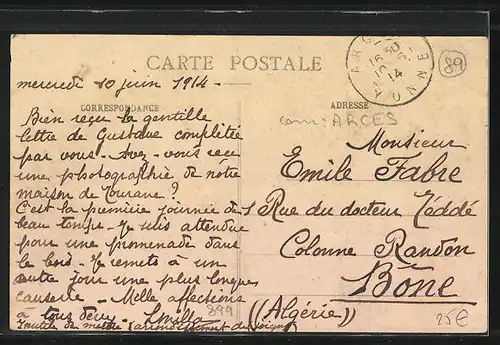 CARTE POSTALE
ARCES
YONNE
16 30
14
89
mercredi 10 juin 1914 -
CORRESPONDANCE
ADRESSE
com: ARCES
Bien reçu la gentille
lettre de Gustave complétée
par vous - Avez-vous reçu
une photographie de nôtre
maison de Tourane ?
C'est la première journée de
beau temps - Je suis attendue
pour une promenade dans
le bois - Je remets à un
autre jour une plus longue
causerie - Mille affections
à tous deux
Inutile de mettre
Monsieur
Emile Fabre
1 Rue du docteur
Colonne Randon
Bône
(Algérie)
899
25€